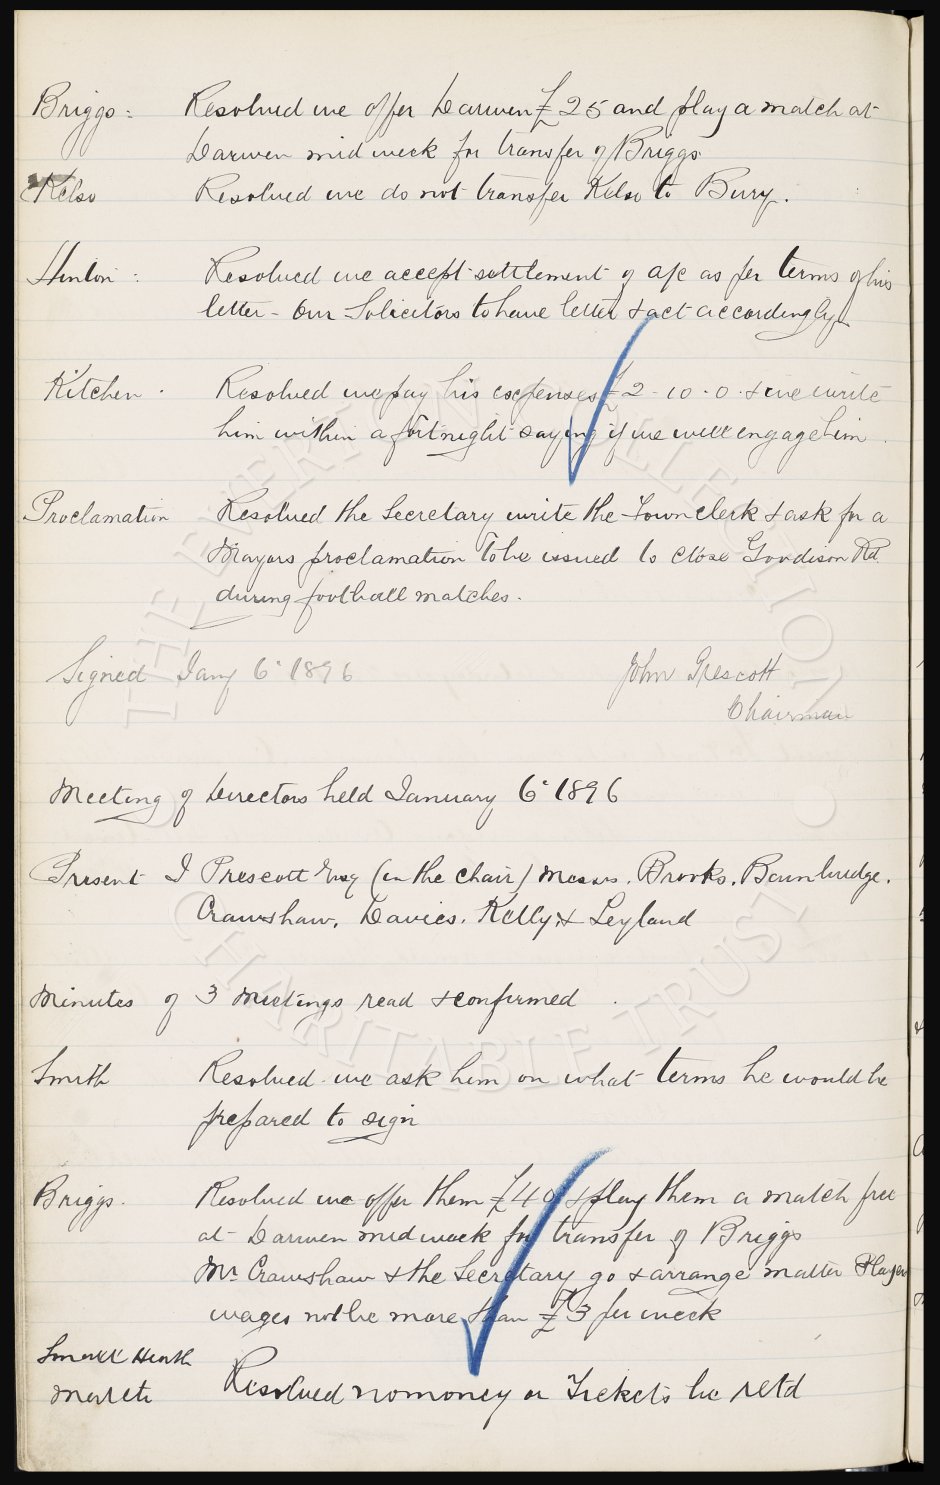 Briggs : Resolved we offer Darwen £25 and play a match at
Darwen mid week for transfer of Briggs
Kelso Resolved we do not transfer Kelso to Bury.
Hinton : Resolved we accept settlement of a/c as per terms of his
letter - Our Solicitors to have letter & act accordingly
Kitchen . Resolved we pay his expenses £2-10-0 & we write
him within a fortnight saying if we will engage him.
Proclamation Resolved the Secretary write the Town clerk & ask for a
Mayors proclamation to be issued to close Goodison Rd.
during football matches.
Signed Jany 6° 1896 John Prescott
Chairman
Meeting of Directors held January 6° 1896
Present J Prescott Esq (in the chair) Messrs. Brooks, Bainbridge,
Crawshaw, Davies, Kelly, & Leyland
Minutes of 3 Meetings read & confirmed .
Smith Resolved we ask him on what terms he would be
prepared to sign
Briggs. Resolved we offer them £40 & play them a match free
at Darwen mid week for transfer of Briggs
Mr. Crawshaw & the Secretary go & arrange matter Player
wages not be more than £3 per week
Small Heath
Match Resolved no money or Tickets be retd
THE EVERTON COLLECTION
CHARITABLE TRUST